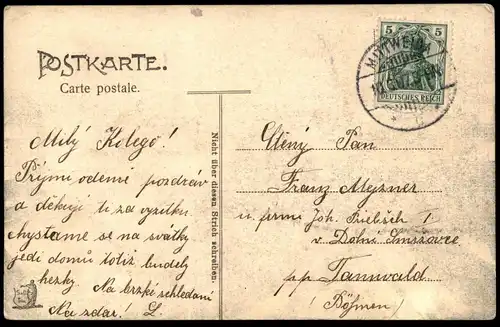 POSTKARTE.
Carte postale.
Milý Kolego!
Přijmi odemě pozdrav
a děkuji ti za vizitku
chystame se na svátky
jedi domů totiž budely
hezky. Na brzké schledaní
Na zdar! L
Nicht über diesen Strich schreiben.
5 5
DEUTSCHES REICH
MITTWEIDA
Ctěný Pan
Franz Meyzner
u firme Joh. Priebsch
v Dolni
p.p Tannwald
(Böhmen)